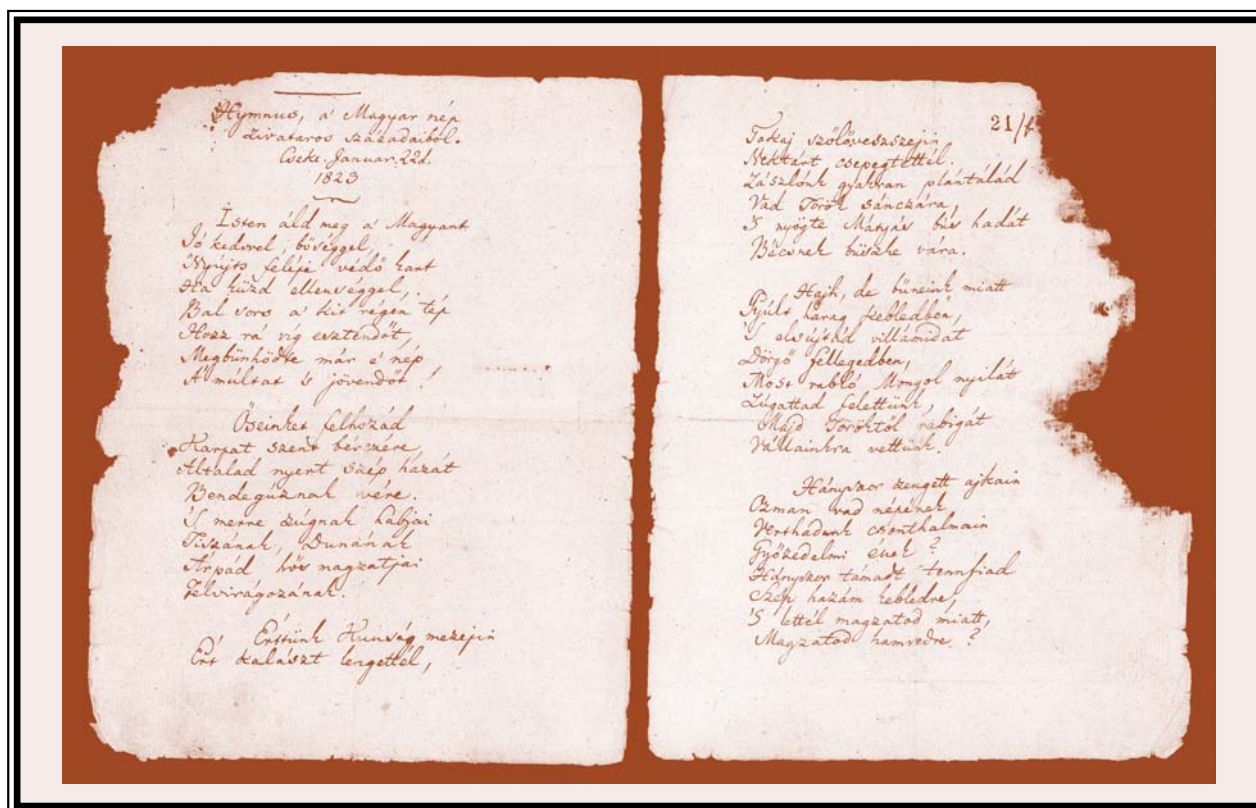 Hymnus, a' Magyar nép
zivataros századaiból.
Cseke. Januar. 22d.
1823
Isten áld meg a' Magyart
Jó kedvvel, bőséggel,
Nyújts feléje védő kart
Ha küzd ellenséggel,
Bal sors a' kit régen tép
Hozz rá víg esztendőt,
Megbűnhödte már e' nép
A' múltat 's jövendőt!
Őseinket felhozád
Kárpát szent bérczére,
Általad nyert szép hazát
Bendegúznak vére.
'S merre zúgnak habjai
Tiszának, Dunának
Árpád hős magzatjai
Felvirágozának.
Értünk Kunság mezejin
Ért kalászt lengettél,
21/
Tokaj szőlőveszszejin
Nektárt csepegtettél.
Zászlónk gyakran plántálád
Vad Török sánczára,
'S nyögte Mátyás bús hadát
Bécsnek büszke vára.
Hajh, de bűneink miatt
Gyúlt harag kebledben,
'S elsújtád villámidat
Dörgő fellegedben,
Most rabló Mongol nyilát
Zúgattad felettünk,
Majd Töröktől rabigát
Vállainkra vettünk.
Hányszor zengett ajkain
Ozman vad népének
Vert hadunk csonthalmain
Győzedelmi ének?
Hányszor támadt tennfiad
Szép hazám kebledre,
'S lettél magzatod miatt,
Magzatod hamvedre?